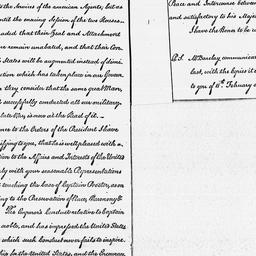 to the Service of the american Agents, but as
until the meaning of the two Houses
that their Zeal and Attachment
remain unabated, and that their Con
States will be augmented instead of dimi
ction which has taken place in our Govern
they consider that the same great Man,
successfully conducted all our military,
now at the Head of it.
me to the Orders of the President I have
you, that he is well pleased with
tion to the Affairs and Interests of the United
with your reasonable Representations
touching the Case of Captain Proctor, as on
to the Preservation of Peace, Harmony &
The Emperor's Conduct relative to Captain
noble, and has impressed the United
which such Conduct never fails to inspire.
in the United States, and the Encrease
Peace and Intercourse between
and satisfactory to his Majes
I have the Honor to be w
P.S. Mr. Barclay communica
last, with the Copies it
to you of 6th. February